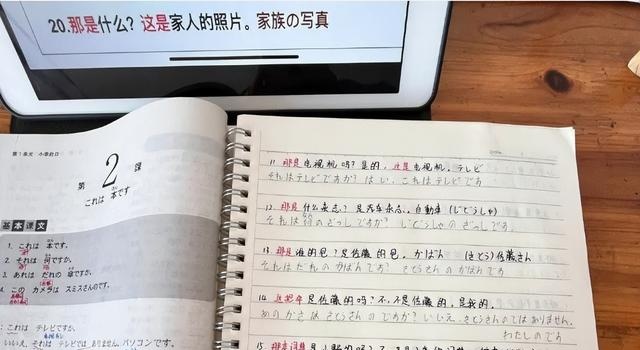 20.那是什么? 这是家人的照片。家族の写真
第1单元 小李赴日
第2课
これは 本です
ほん
基本课文
1. これは 本です。
2. それは 何ですか。
3. あれは だれの 傘ですか。
4. この カメラは スミスさんのです。
これは テレビですか。
いいえ、それは テレビでは ありません。パソコンです。
11. 那是电视机吗? 是的, 这是电视机。テレビ
それはテレビですか? はい、これはテレビです
12. 那是什么杂志? 是汽车杂志。自動車 (じどうしゃ)
それは何のざっしですか? じどうしゃのざっしです。
13. 那是谁的包? 是佐藤的包。かばん (さとう) 佐藤さん
それはだれのかばんです? さとうさんのかばんです
14. 这把伞是佐藤的吗? 不, 不是佐藤的, 是我的。
あのかさはさとうさんのですか? いいえ、さとうさんのではありません。
わたしのです
15. 那本词典是